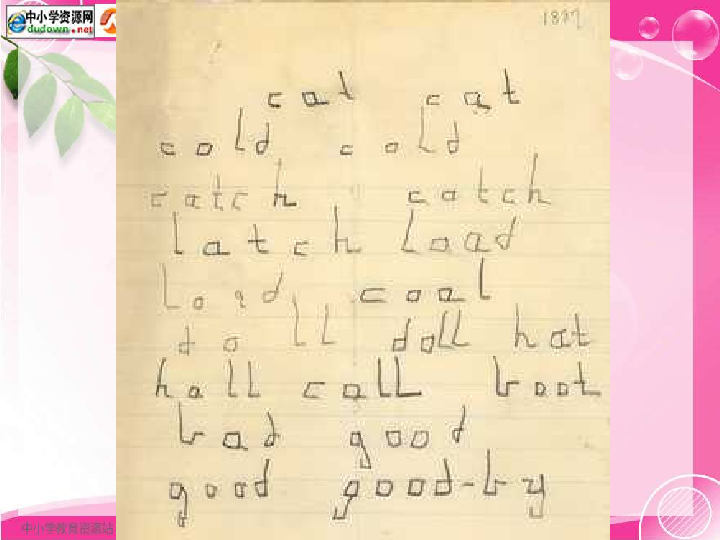 中小学资源网
dudown.net
1887
cat cat
cold cold
catch catch
latch load
load coal
doll doll hat
hall call boot
bad good
good good-by
中小学教育资源站